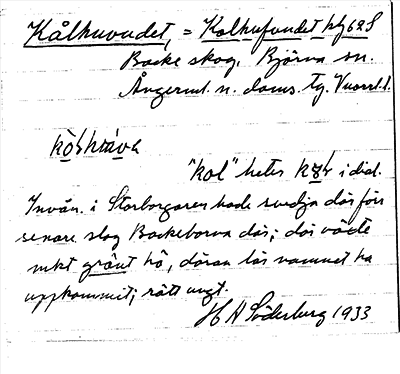 Kålhuvudet, = Kolhufvudet
Backe skog, Björna sn.
Ångerml. n. doms. Tg.
"kol" heter i dial.
Invån. i Storborgaren hade svedja där förr
senare slog Backeborna där; där växte
mkt grönt hö, därav lär namnet ha
uppkommit; rätt ungt.
H A Söderberg 1933